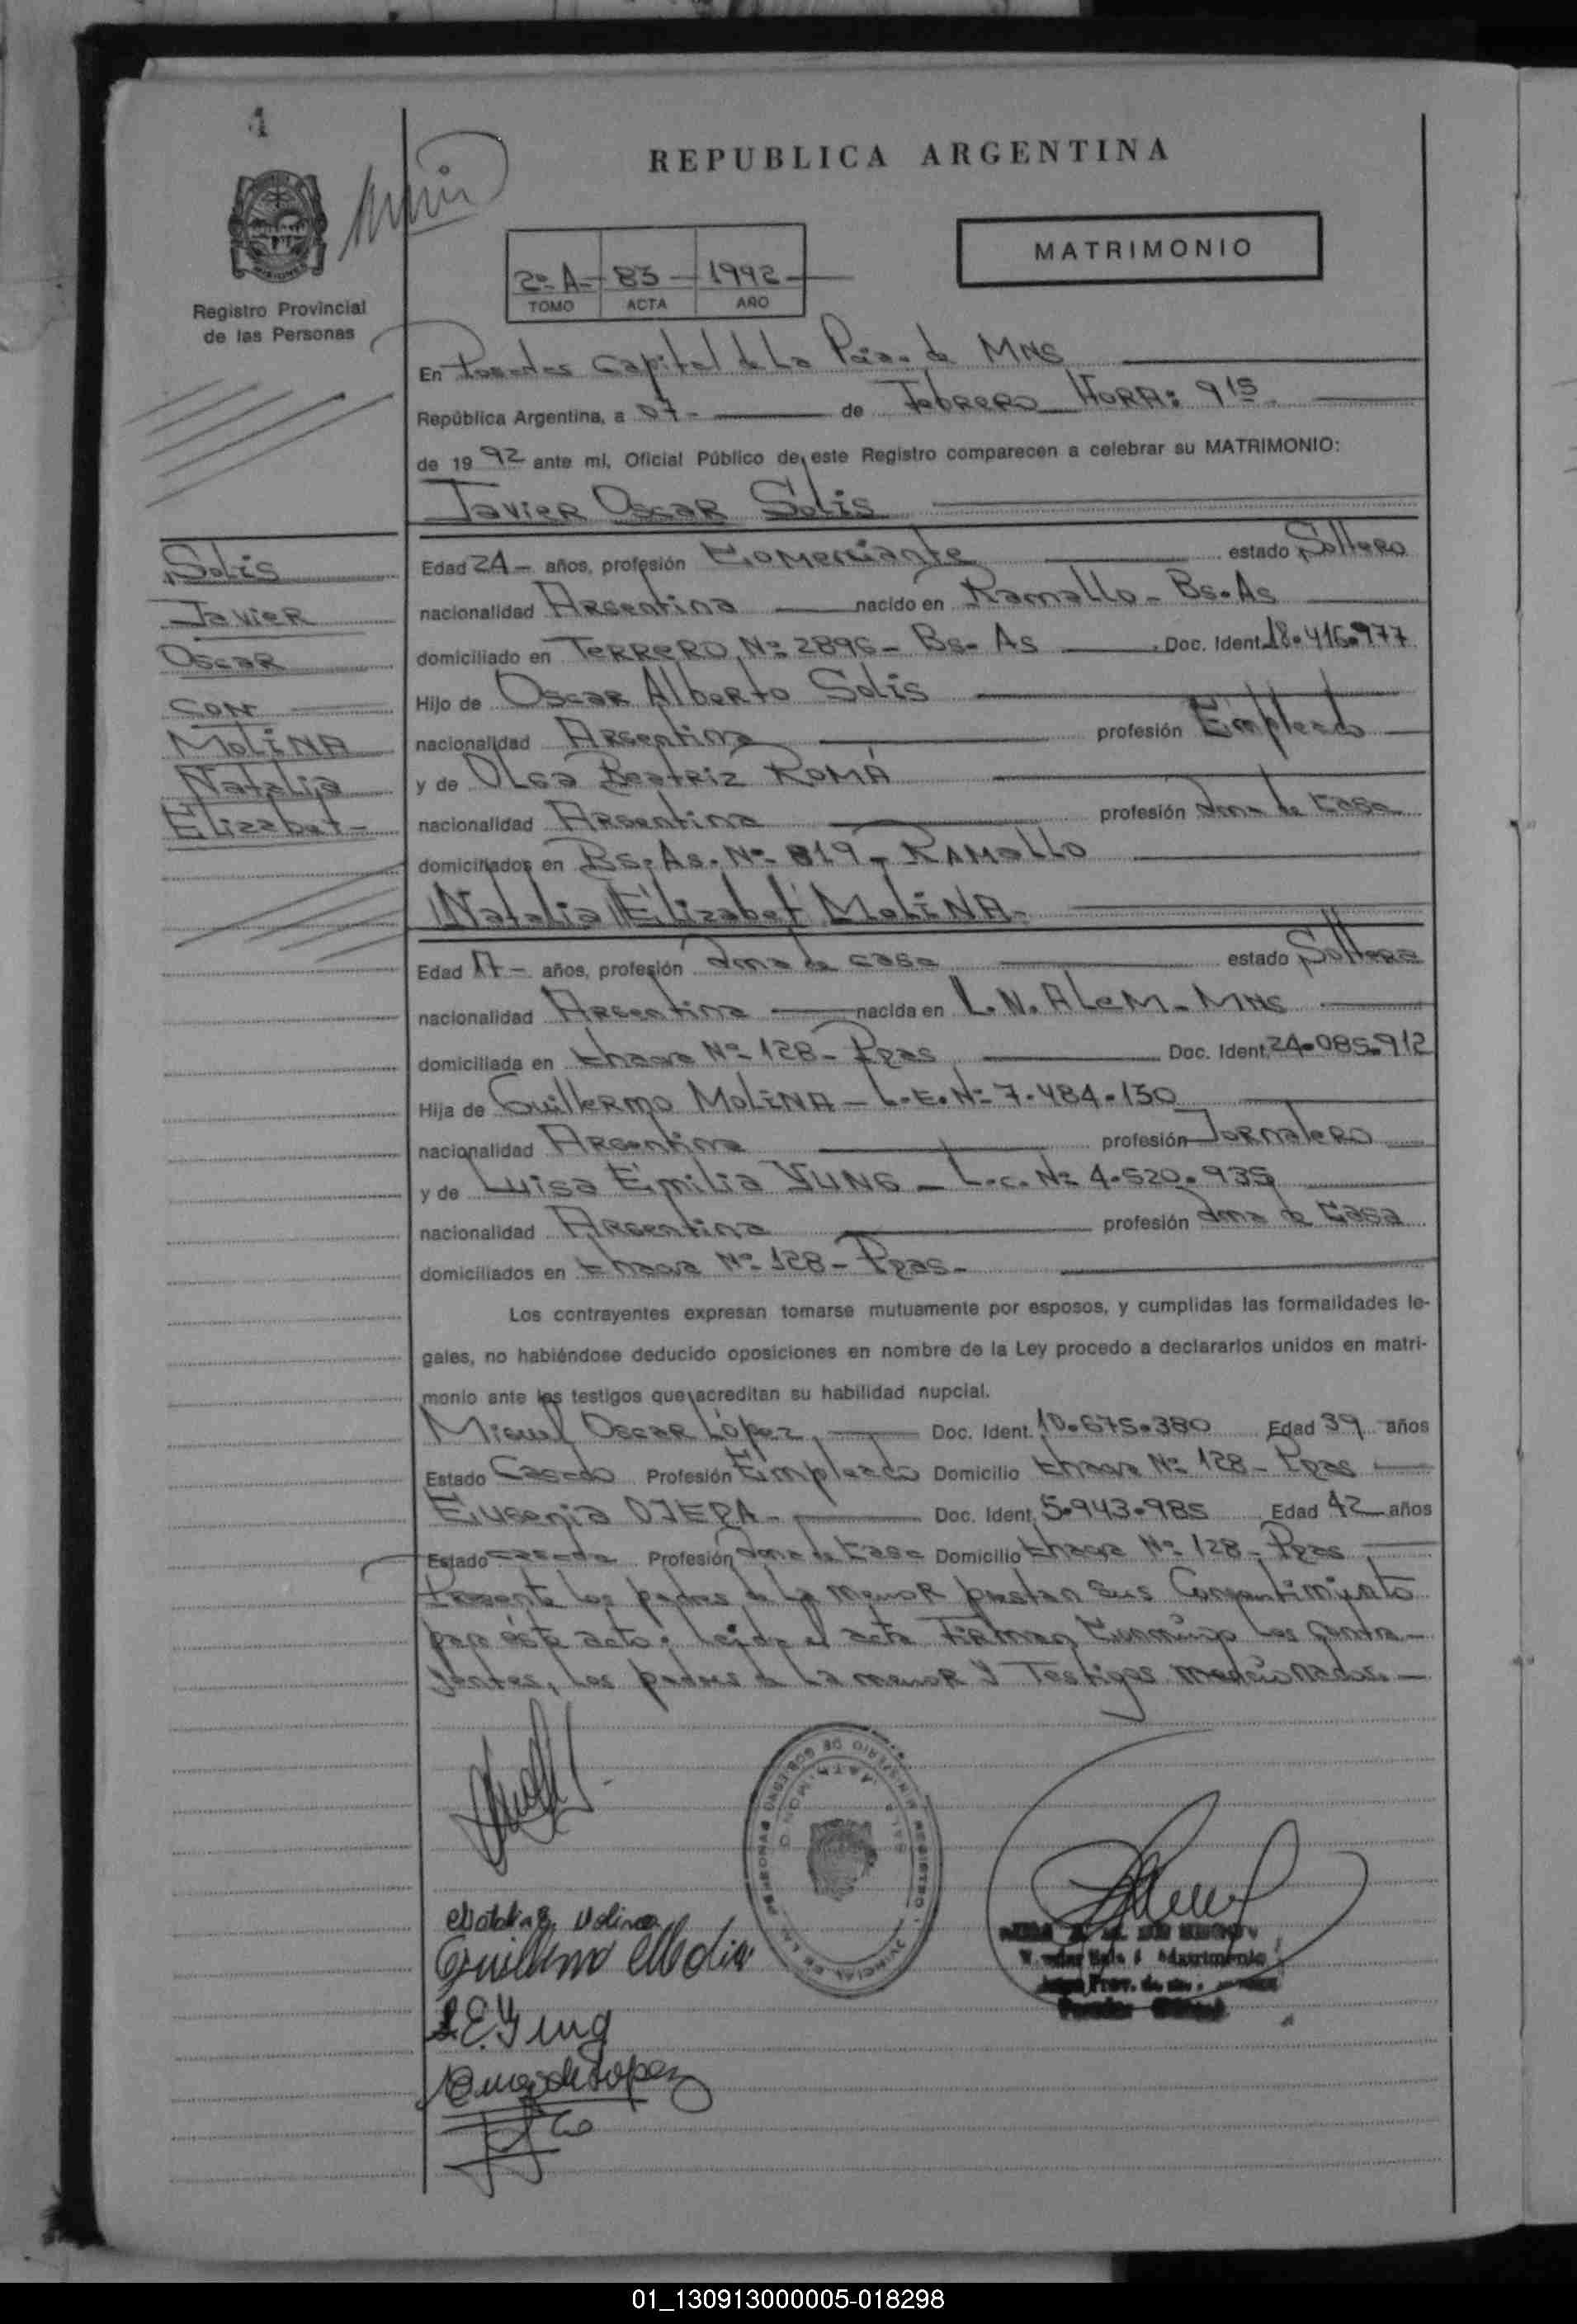 1
REPUBLICA ARGENTINA
MATRIMONIO
2º A- 83 - 1992 -
TOMO ACTA AÑO
Registro Provincial
de las Personas
En Posadas Capital de La Pcia. de Mns
República Argentina, a 07 - de Febrero Hora: 9 15
de 19 92 ante mi, Oficial Público de este Registro comparecen a celebrar su MATRIMONIO:
Javier Oscar Solis
Solis
Javier
Oscar
con
Molina
Natalia
Elizabet -
Edad 24 - años, profesión Comerciante estado Soltero
nacionalidad Argentina nacido en Ramallo - Bs. As
domiciliado en Terrero Nº 2896 - Bs. As Doc. Ident. 18.416.977
Hijo de Oscar Alberto Solis
nacionalidad Argentina profesión Empleado
y de Olga Beatriz Romá
nacionalidad Argentina profesión Ama de Casa
domiciliados en Bs. As. Nº 819 - Ramallo
Natalia Elizabet Molina -
Edad 17 - años, profesión Ama de casa estado Soltera
nacionalidad Argentina nacida en L.N. Alem - Mns
domiciliada en Nº 128 - Pdas Doc. Ident. 24.085.912
Hija de Guillermo Molina - L.E. Nº 7.484.130
nacionalidad Argentina profesión Jornalero
y de Luisa Emilia Yung - L.C. Nº 4.520.935
nacionalidad Argentina profesión Ama de Casa
domiciliados en Nº 128 - Pdas -
Los contrayentes expresan tomarse mutuamente por esposos, y cumplidas las formalidades le-
gales, no habiéndose deducido oposiciones en nombre de la Ley procedo a declararlos unidos en matri-
monio ante los testigos que acreditan su habilidad nupcial.
Miguel Oscar López Doc. Ident. 10.675.380 Edad 39 años
Estado Casado Profesión Empleado Domicilio Nº 128 - Pdas
Eugenia Ojeda - Doc. Ident. 5.943.985 Edad 42 años
Estado casada Profesión Ama de Casa Domicilio Nº 128 - Pdas
Presente los padres de la menor prestan sus Consentimiento
para éste acto; leída el acta Firman Conmigo los contra-
yentes, los padres de la menor y Testigos mencionados -
MATRIMONIO
Natalia E. Molina
Guillermo Molina
L.E. Yung
Matrimonio
01_130913000005-018298